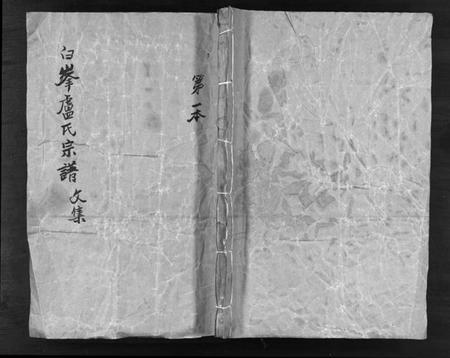 白峯盧氏宗譜文集
第一本